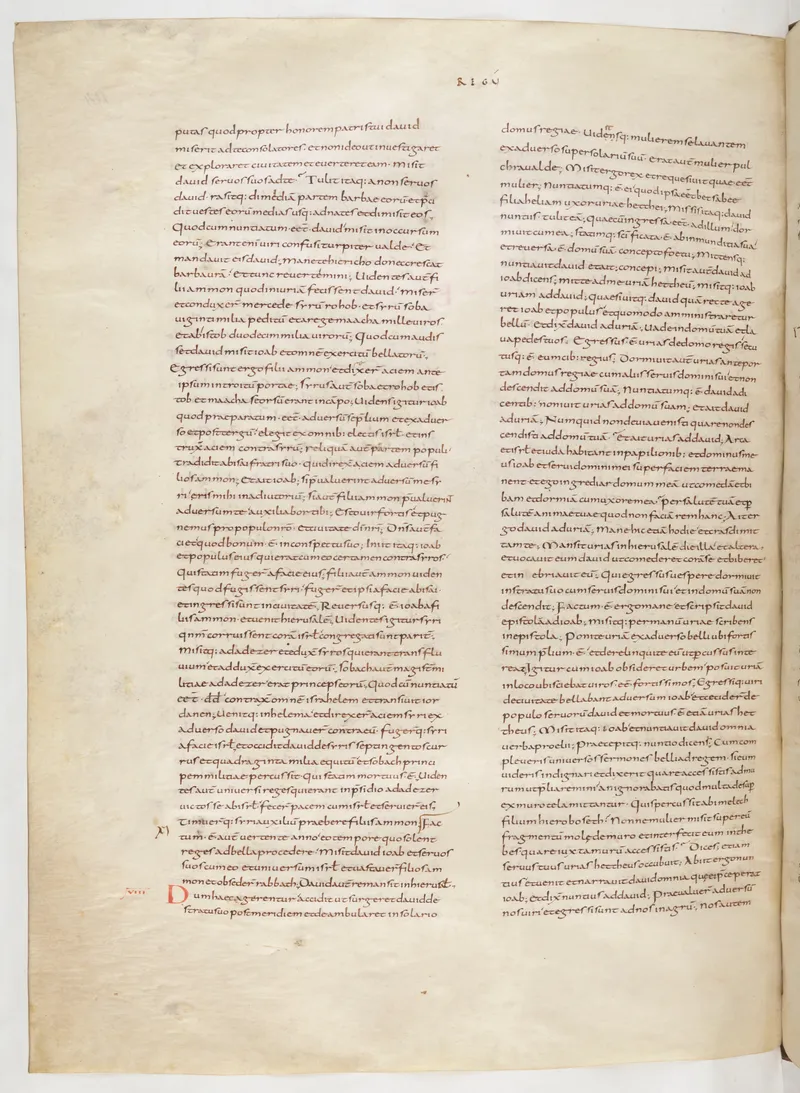 REGŪ
putas quod propter honorem patris tui david
miserit ad te consolatores. et non ideo ut investigaret
et exploraret civitatem et everteret eam. Misit
david servos suos ad te. Tulit itaq: anon servos
david. rasitq: dimediā partem barbae eorū et p̄ci
dit vestes eorū medias usq: ad nates et dimisit eos.
Quod cum nuntiatum eēt david misit in occursum
eorū; Erant enī viri confusi turpiter valde. Et
mandavit eis david; Manete hiericho donec crescat
barba v̄ra. et tunc revertemini; Videntes aūt fi
lii ammon quod iniuriā fecissent david. miser̄
et conduxer̄ mercede syrū rohob. et syrū soba
viginti milia peditū et a rege maacha mille viros
et ab istob duodecim milia virorū; Quod cum audis
set david misit ioab et omnē exercitū bellatorū;
Egressi sunt ergo filii ammon et dixer̄ aciem ante
ipsum introitū portae; syrus aūt soba et rohob et is
tob et maacha seorsū erant in cāpo; Videns igitur ioab
quod praeparatum eēt adversū se p̄lium et ex adver
so et post tergū. elegit ex omnib: electis isrl̄ et ins
truxit aciem contra syrū; reliquā aūt partem populi
tradidit abisai fratri suo. qui direxit aciem adversū fi
lios ammon; Et ait ioab; si p̄valuerint adversū me sy
ri eris mihi in adiutoriū; si aūt filii ammon p̄valuerint
adversum te auxiliabor tibi; Esto vir fortis et pug
nemus pro populo nr̄o. et civitate dī nr̄i; Dn̄s aūt fa
ciet quod bonum ē in conspectu suo; Iniit itaq: ioab
et populus eius qui erat cum eo certamen contra syros.
Qui statim fuger̄ a facie eius; filii aūt ammon viden
tes quod fugissent syri. fuger̄ et ipsi a facie abisai
et ingressi sunt in civitatē; Reversusq: ē ioab a fi
liis ammon. et venit hierusalē; Videntes igitur syri
qn̄m corruissent corā isrl̄ congregati sunt pariter;
Misitq: adadezer et eduxit syros qui erant trans flu
vium et adduxit exercitū eorū; sobach aūt magister mi
litiae adadezer erat princeps eorū; Quod cū nuntiatū
eēt dd̄ contraxit omnē israhelem et transivit ior
danen; Venitq: in helema et direxer̄ aciem syri ex
adverso david et pugnaver̄ contra eū. fugerq: syri
a facie isrl̄ et occidit david de syris septingentos cur
rus et quadraginta milia equitū et sobach princi
pem militiae percussit. qui statim mortuus ē; Viden
tes aūt universi reges qui erant in p̄sidio adadezer
victos se ab isrl̄. fecer̄ pacem cum isrl̄ et servier̄ eis;
Timuerq: syri auxiliū praebere filiis ammon; Fac
tum ē aūt vertente anno eo tempore quo solent
reges ad bella procedere. Misit david ioab et servos
suos cum eo et universum isrl̄ et vastaver̄ filios am
mon et obseder̄ rabbath; David aūt remansit in hierusl̄.
VIII
Dum haec agerentur accidit ut surgeret david de
stratu suo post meridiem et deambularet in solario
domus regiae. Viditq: mulierem se lavantem
ex adverso super solariū suū. erat aūt mulier pul
chra valde; Misit ergo rex et requisivit quae eēt
mulier; Nuntiatumq: ē ei quod ipsa eēt bethsabee
filia heliam uxor uriae hetthei; Missis itaq: david
nuntiis tulit eā; Quae cū ingressa eēt ad illum dor
mivit cum ea; statimq: scīficata ē ab inmunditia sua.
et reversa ē domū suā concepto foetu; Mittensq:
nuntiavit david et ait; concepi; misit aūt david ad
ioab dicens; mitte ad me uriā hettheū; misitq: ioab
uriam ad david; quaesivitq: david quā recte age
ret ioab et populus et quomodo amministraretur
bellū. Et dixit david ad uriā; Vade in domū tuā et la
va pedes tuos. Egressus ē urias de domo regis secu
tusq: ē eum cibus regius; Dormivit aūt urias ante por
tam domus regiae cum aliis servis domini sui et non
descendit ad domū suā; Nuntiatumq: ē david a di
centib: non ivit urias ad domū suam; et ait david
ad uriā; Numquid non de via venisti quare non des
cendisti ad domū tuā. Et ait urias ad david; Arca
et isrl̄ et iuda habitant in papilionib: et dominus me
us ioab et servi domini mei super faciem terrae ma
nent et ego ingrediar domum meā ut comedā et bi
bam et dormiā cum uxore mea. per salutē tuā et p
salutē animae tuae quod non faciā rem hanc; Ait er
go david ad uriā; Mane hic etiā hodie. et cras dimit
tam te; Mansit urias in hierusalē die illa et altera.
et vocavit eum david ut comederet corā se et biberet.
et inebriavit eū; Qui egressus vespere dormivit
in stratu suo cum servis domini sui et in domū suā non
descendit; Factum ē ergo mane et scripsit david
epistolā ad ioab; misitq: per manū uriae scribens
in epistola; Ponite uriā ex adverso belli ubi fortis
simum p̄lium ē. et derelinquite eū ut percussus inte
reat; Igitur cum ioab obsideret urbem posuit uriā
in loco ubi sciebat viros eē fortissimos; Egressiq: viri
de civitate bellabant adversum ioab et cecider̄ de
populo servorū david et mortuus ē etiā urias het
theus; Misit itaq: ioab et nuntiavit david omnia
verba proelii; Praecepitq: nuntio dicens; Cum com
pleveris universos sermones belli ad regem. si eum
videris indignari et dixerit quare accessistis ad mu
rum ut p̄liaremini. an ignorabatis quod multa desup
ex muro tela mittantur. Quis percussit abimelech
filium hierobosheth. Nonne mulier misit super eū
fragmentū mole de muro et interfecit eum in the
bes quare iuxta murū accessistis. Dices etiam
servus tuus urias hettheus occubuit; Abiit ergo nun
tius et venit et narravit david omnia quae ei p̄ceperat
ioab; et dixit nuntius ad david; Praevaluer̄ adversū
nos viri et egressi sunt ad nos in agrū; nos autem